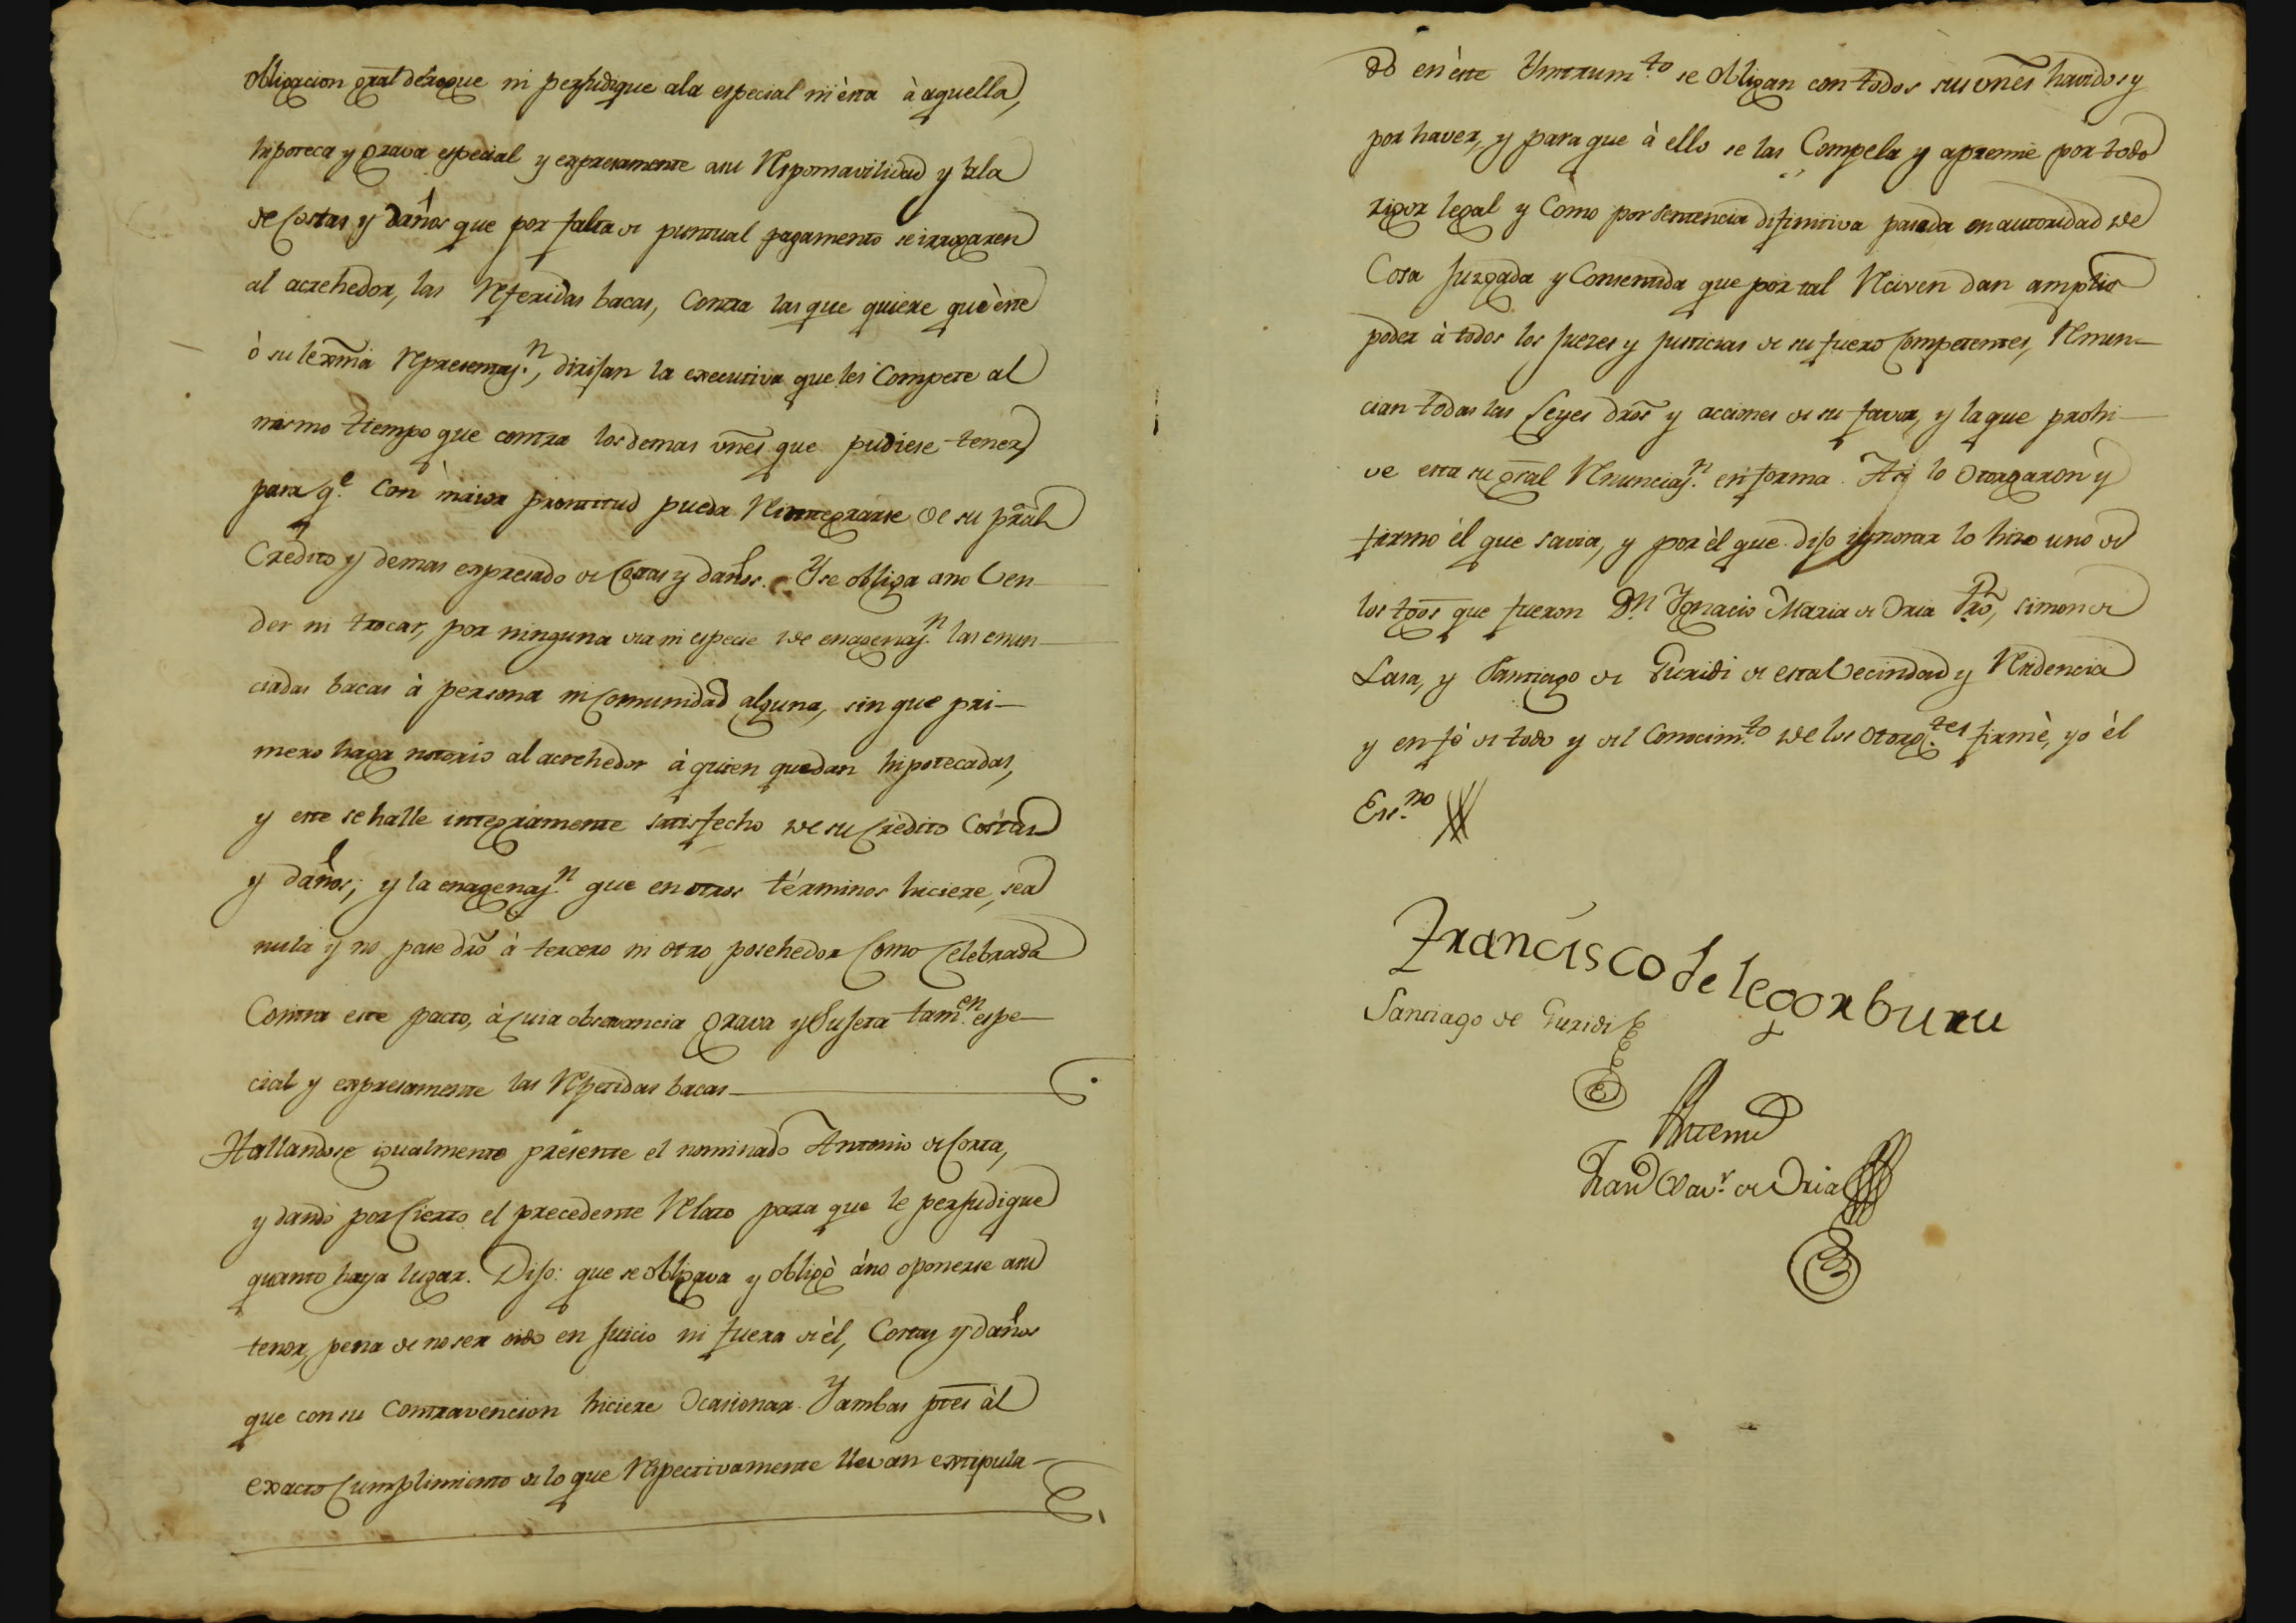 obligacion gral derogue ni perjudique ala especial ni èsta à aquella,
hipoteca y grava especial y expresamente asu Responsavilidad y àla
de Costas y daños que por falta de puntual pagamento se irrogaren
al acrehedor, las Referidas bacas, Contra las que quiere que èste
ò su lexma Representaj.n, dirijan la executiva que les Compete al
mismo tiempo que contra los demas vnes que pudiese tener,
para q.e con maior prontitud pueda Reintegrarse de su pral
Credito y demas expresado de Costas y daños. Y se obliga ano Ven-
der ni trocar, por ninguna via ni especie de enagenaj.n las enun-
ciadas bacas à persona ni Comunidad alguna, sin que pri-
mero haga notorio al acrehedor à quien quedan hipotecadas,
y este se halle integramente satisfecho de su Crèdito Costas
y daños; y la enagenaj.n que en otros términos hiciere, sea
nula y no pase dro à tercero ni otro posehedor Como Celebrada
Contra este pacto, à Cuia observancia grava y Sujeta tam.en espe-
cial y expresamente las Referidas bacas
Hallandose igualmente presente el nominado Antonio de Corta,
y dando por Cierto el precedente Relato para que le perjudique
quanto haya lugar. Dijo: que se obligava y obligò áno oponerse asu
tenor, pena de no ser oido en Juicio ni fuera de èl, Costas y daños
que con su Contravencion hiciere Ocasionar. Y ambas ptes àl
exacto Cumplimiento de lo que Respectivamente llevan extipula-
do en èste Ynstrum.to se obligan con todos sus vnes havidos y
por haver, y para que à ello se las Compela y apremie por todo
rigor legal y Como por sentencia difinitiva pasada en autoridad de
Cosa Juzgada y Consentida que por tal Reciven dan amplio
poder à todos los Juezes y Justicias de su fuero Competentes, Renun-
cian todas las Leyes dros y acciones de su favor, y la que prohi-
ve esta su gral Renunciaj.n en forma. Asi lo Otorgaron y
firmò èl que savia, y por èl que dijo ignorar lo hizo uno de
los tgos que fueron D.n Ygnacio Maria de Oria Pro, Simon de
Lasa, y Santiago de Guridi de esta Vecindad y Residencia
y en fé de todo y del Conocim.to de los otorg.tes firmè, yo èl
Ess.no
Francisco de legorburu
Santiago de Guridi
Antemi
Fran.co Xav.r de Oria